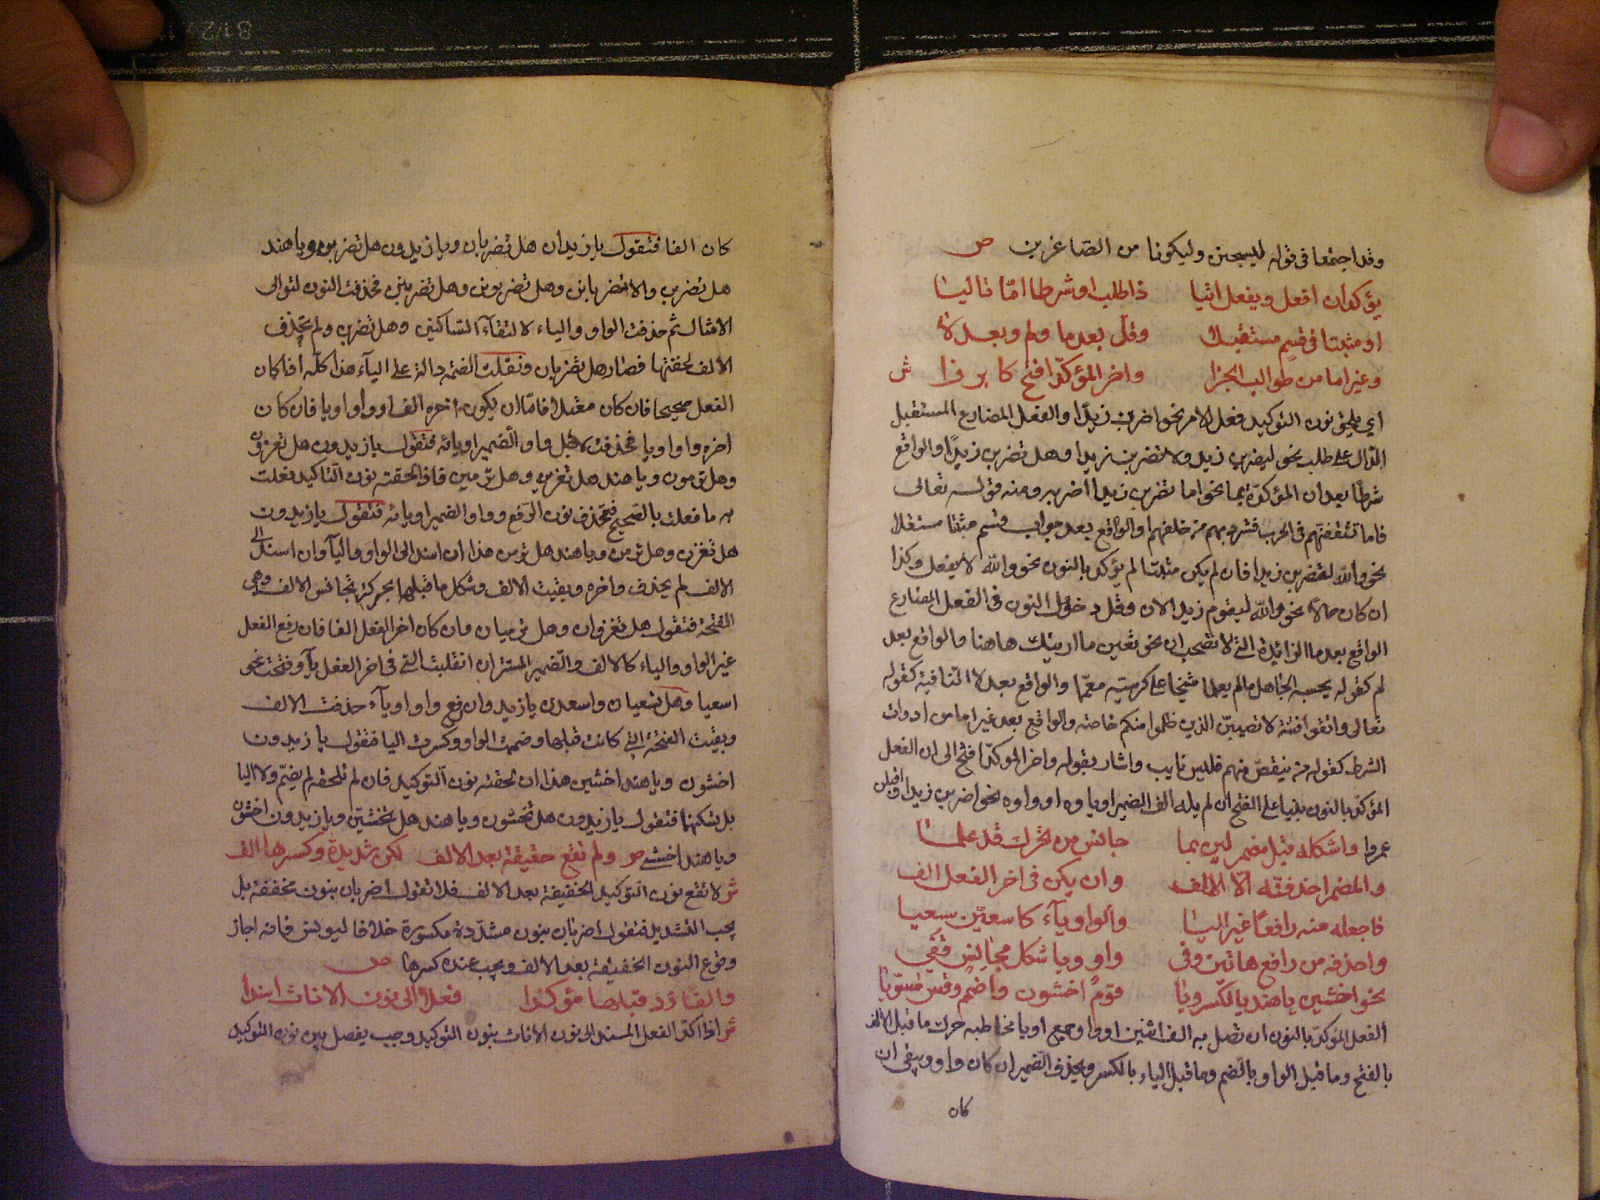 وقد اجتمعا في قوله ليسجنن وليكونا من الصاغرين ص
يؤكدان افعل ويفعل اتيا ذا طلب او شرطا اما تاليا
او مثبتا في قسم مستقبلا وقل بعد ما ولم وبعد لا
وغير اما من طوالب الجزا واخر المؤكد افتح كابرزا ش
اي يلحق نون التوكيد فعل الامر نحو اضربن زيدا والفعل المضارع المستقبل
الدال على طلب نحو ليضربن زيد ولا تضربن زيدا وهل تضربن زيدا والواقع
شرطا بعد ان المؤكدة بما نحو اما تضربن زيدا اضربه ومنه قوله تعالى
فاما تثقفنهم في الحرب فشرد بهم من خلفهم والواقع بعد جواب قسم مثبتا مستقبلا
نحو والله لتضربن زيدا فان لم يكن مثبتا لم يؤكد بالنون نحو والله لا يفعل وكذا
ان كان حالا نحو والله ليقوم زيد الان وقل دخول النون في الفعل المضارع
الواقع بعد ما الزائدة التي لا تصحب ان نحو بعين ما ارينك هاهنا والواقع بعد
لم كقوله يحسبه الجاهل ما لم يعلما شيخا على كرسيه معمما والواقع بعد لا النافية كقوله
تعالى واتقوا فتنة لا تصيبن الذين ظلموا منكم خاصة والواقع بعد غير اما من ادوات
الشرط كقوله من يثقفن منهم فليس بايب واشار بقوله واخر المؤكد افتح الى ان الفعل
المؤكد بالنون يبنى على الفتح ان لم يله الف الضمير او ياوه او واوه نحو اضربن زيدا واقتلن
عمروا واشكله قبل مضمر لين بما جانس من تحرك قد علما
والمضمر احذفنه الا الالف وان يكن في اخر الفعل الف
فاجعله منه رافعا غير اليا والواو ياء كاسعين سعيا
واحذفه من رافع هاتين وفي واو ويا شكل مجانس قفي
نحو اخشين يا هند بالكسر ويا قوم اخشون واضمم وقس مسويا
الفعل المؤكد بالنون ان تصل به الف اثنين او واو جمع او يا مخاطبه حرك ما قبل الالف
بالفتح وما قبل الواو بالضم وما قبل الياء بالكسر ويحذف الضمير ان كان واو ويبقى ان
كان
كان الفا فتقول يا زيدان هل تضربان ويا زيدون هل تضربن ويا هند
هل تضربن والاصل تضربانن وهل تضربونن وهل تضربينن فحذفت النون لتوالي
الامثال ثم حذفت الواو والياء لالتقاء الساكنين وهل تضربن ولم تحذف
الالف لخفتها فصار هل تضربان وبقيت الضمه دالة على الياء هذا كله اذا كان
الفعل صحيحا فان كان معتلا فاما ان يكون اخره الف او واو او يا فان كان
اخره واو او يا فحذفت لاجل واو الضمير او يائه فتقول يا زيدون هل تغزون
وهل ترمون ويا هند هل تغزين وهل ترمين فاذا لحقته نون التاكيد فعلت
به ما فعلت بالصحيح فتحذف نون الرفع وواو الضمير او يائه فتقول يا زيدون
هل تغزن وهل ترمن ويا هند هل ترمن هذا ان اسند الى الواو والياء وان اسند الى
الالف لم يحذف واخره وبقيت الالف وشكل ما قبلها بحركة تجانس الالف وهي
الفتحة فتقول هل تغزوان وهل ترميان وان كان اخر الفعل الفا فان رفع الفعل
غير الواو والياء كالالف والضمير المستتر ان انقلبت التي في اخر الفعل ياء وفتحت نحو
اسعيا وهل تسعيان واسعين يا زيد وان رفع واو او ياء حذفت الالف
وبقيت الفتحة التي كانت قبلها وضمت الواو وكسرت اليا فتقول يا زيدون
اخشون ويا هند اخشين هذا ان لحقته نون التوكيد فان لم تلحقه لم يضم ولا اليا
بل تسكنها فتقول يا زيدون هل تخشون ويا هند هل تخشين ويا زيدون اخشوا
ويا هند اخشي ص ولم تقع خفيفة بعد الالف لكن شديدة وكسرها الف
ش لا تقع نون التوكيد الخفيفة بعد الالف فلا تقول اضربان بنون مخففة بل
يجب التشديد فتقول اضربان بنون مشددة مكسورة خلافا ليونس فانه اجاز
وقوع النون الخفيفة بعد الالف ويجب عنده كسرها ص
والفا زد قبلها مؤكدا فعلا الى نون الاناث اسندا
ش اذا اكد الفعل المسند الى نون الاناث بنون التوكيد وجب يفصل بين نون التوكيد